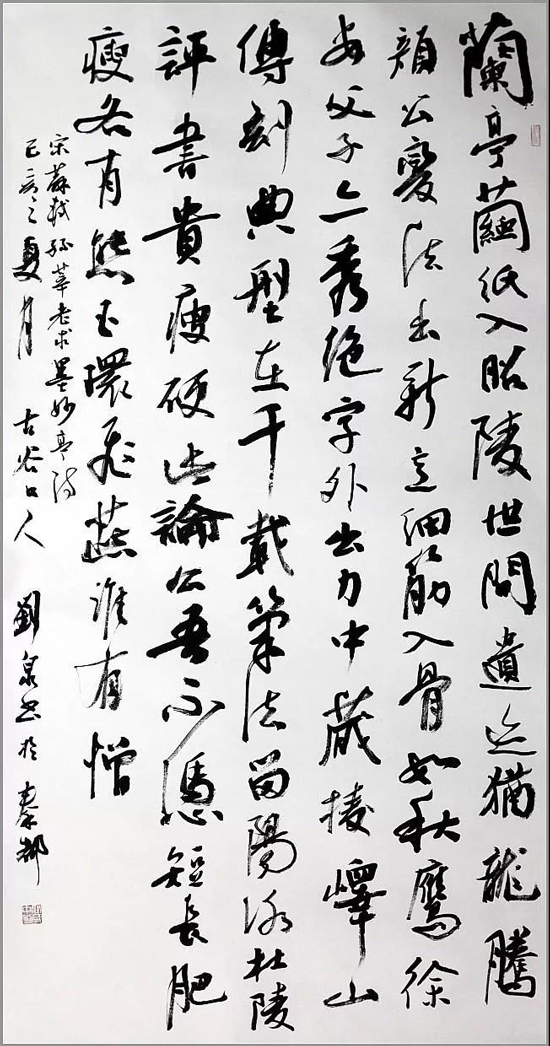 蘭亭繭紙入昭陵世間遺迹猶龍騰
顏公變法出新意細筋入骨如秋鷹徐
家父子亦秀絕字外出力中藏棱嶧山
傳刻典型在千載筆法留陽冰杜陵
評書貴瘦硬此論公吾不憑短長肥
瘦各有態玉環飛燕誰有憎
宋蘇軾孫莘老求墨妙亭詩
己亥之夏月 古谷口人 劉泉書於秦都